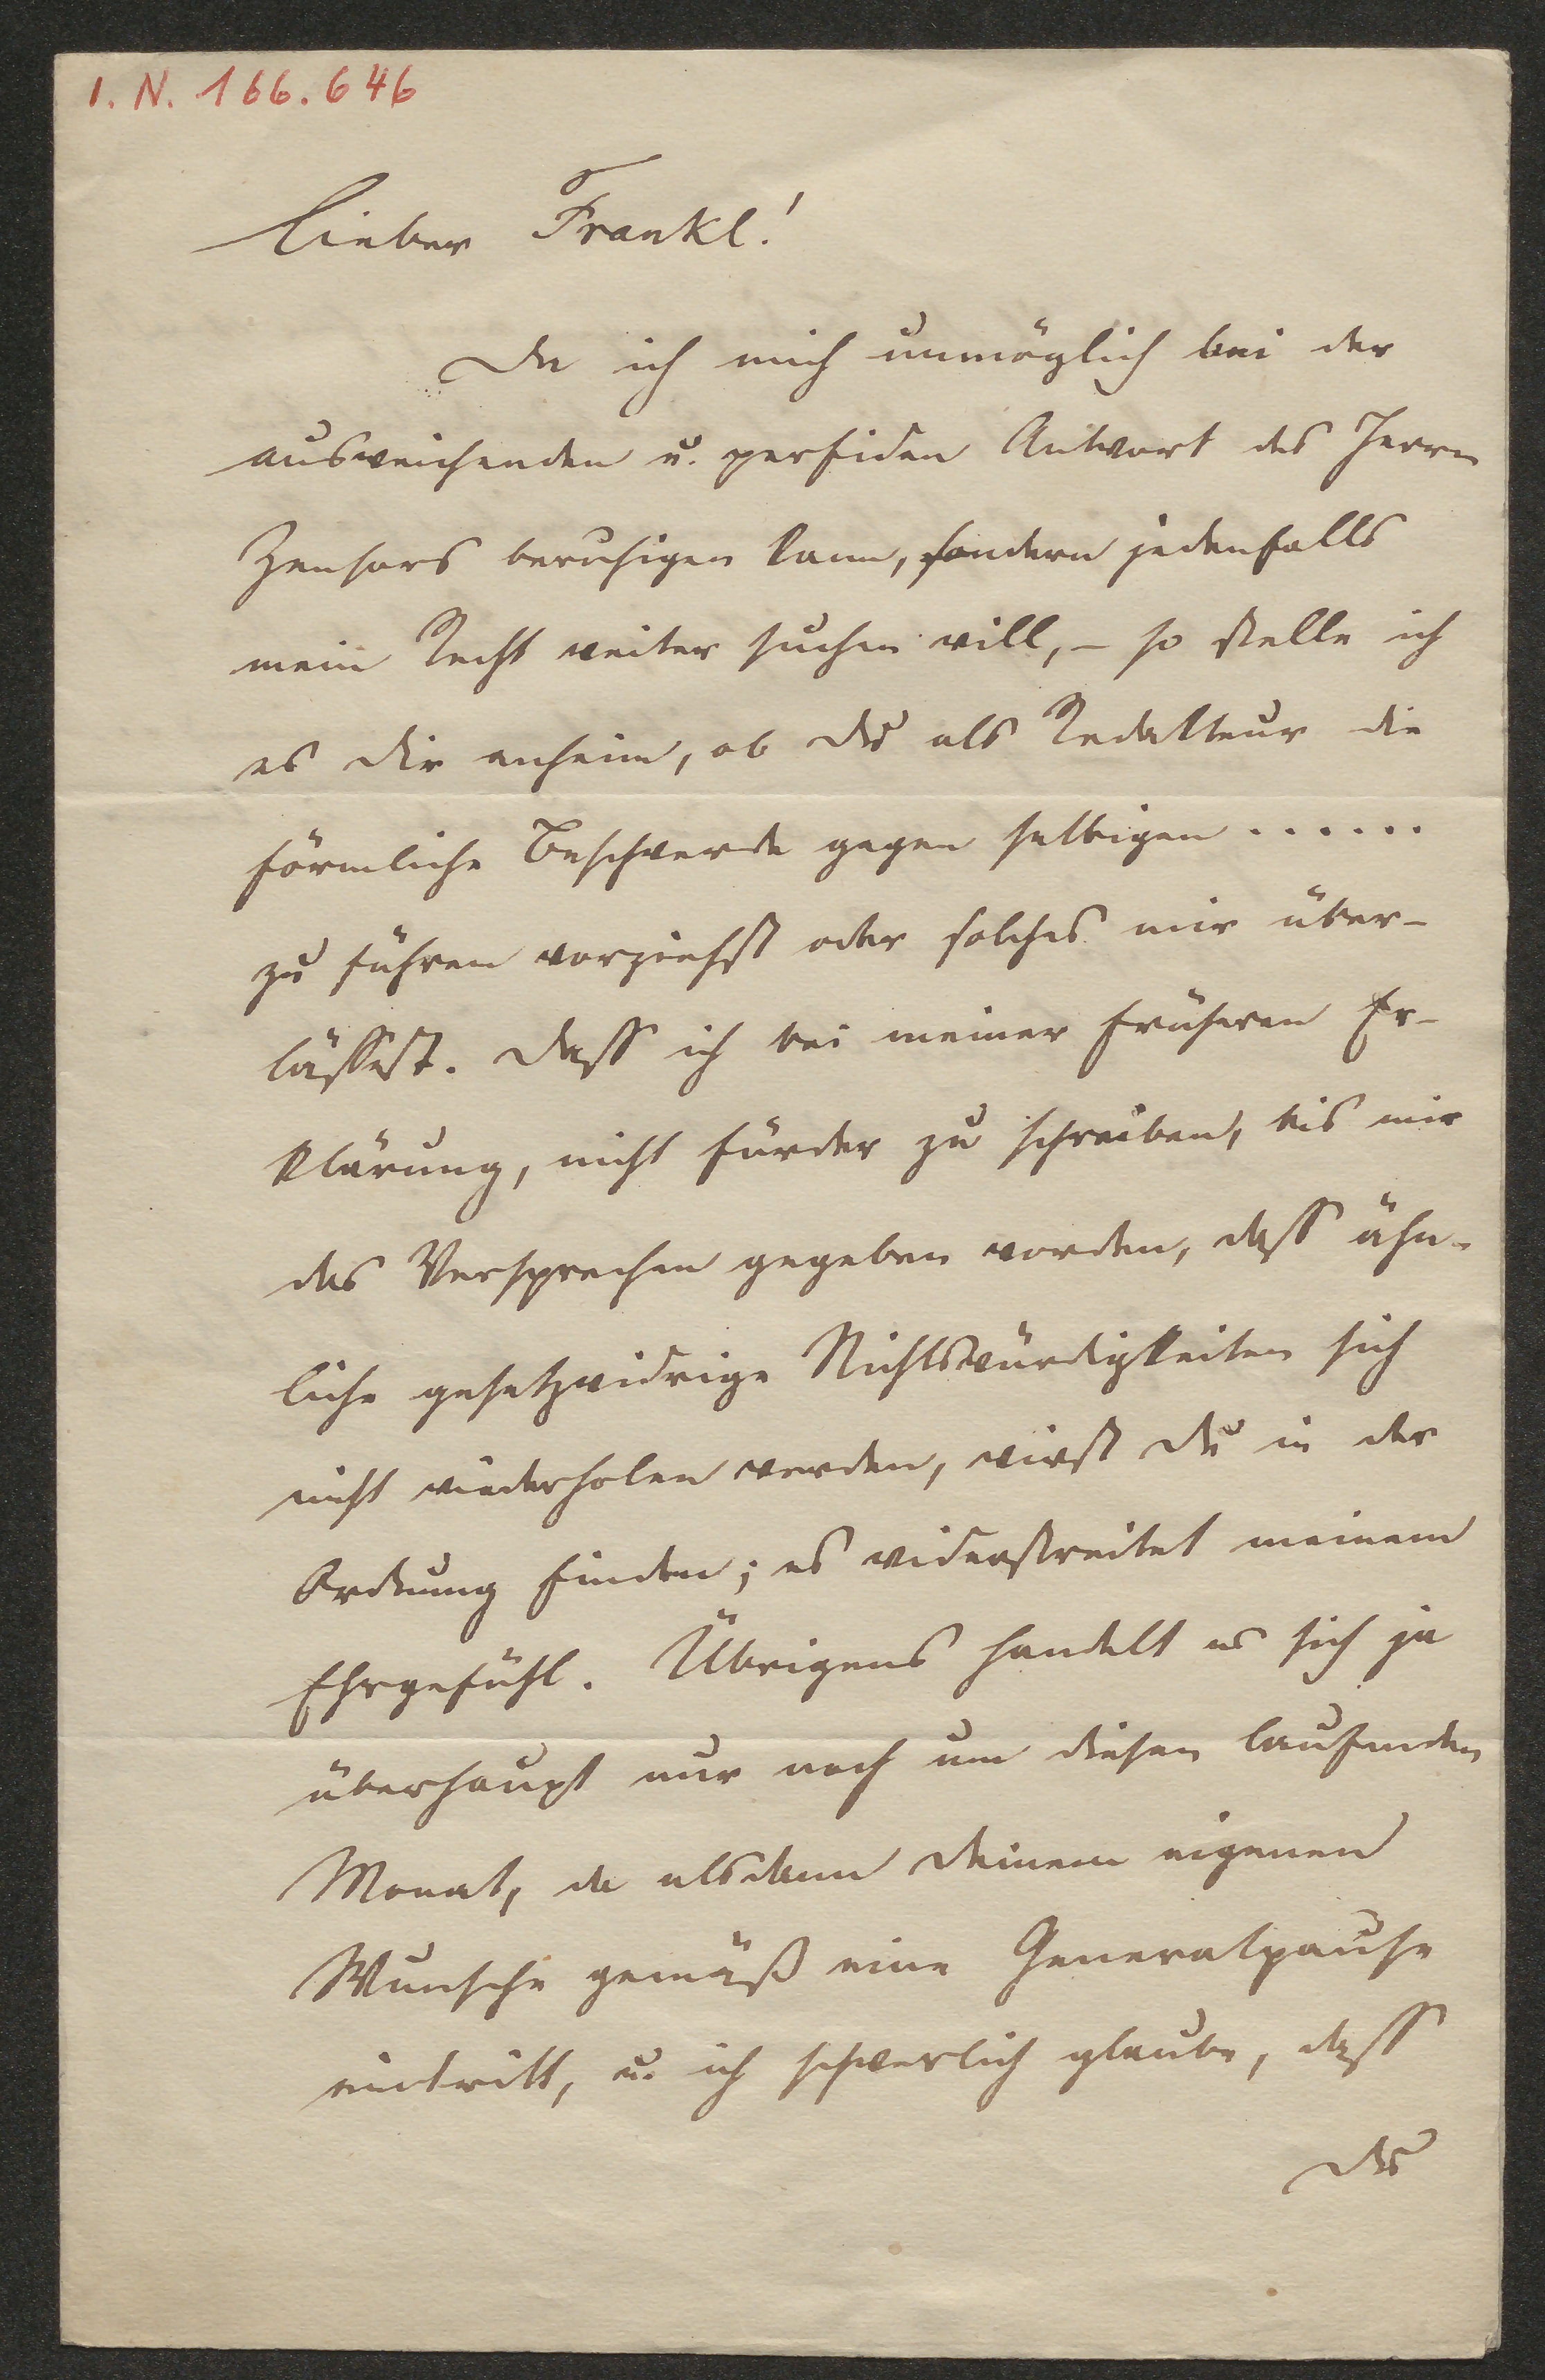 I. N. 166.646
Lieber Frankl!
Da ich mich unmöglich bei der
ausweichenden u. perfiden Antwort des Herrn
Zensors beruhigen kann, sondern jedenfalls
mein Recht weiter suchen will, – so stelle ich
es Dir anheim, ob Du als Redakteur die
förmliche Beschwerde gegen selbigen ......
zu führen vorziehst oder solches mir über-
lässest. Dass ich bei meiner früheren Er-
klärung, nicht fürder zu schreiben, bis mir
das Versprechen gegeben worden, dass ähn-
liche gesetzwidrige Nichtswürdigkeiten sich
nicht wiederholen werden, wirst Du in der
Ordnung finden; es widerstreitet meinem
Ehrgefühl. Übrigens handelt es sich ja
überhaupt nur noch um diesen laufenden
Monat, da alsdann Deinem eigenen
Wunsche gemäß eine Generalpause
eintritt, u. ich schwerlich glaube, dass
Du